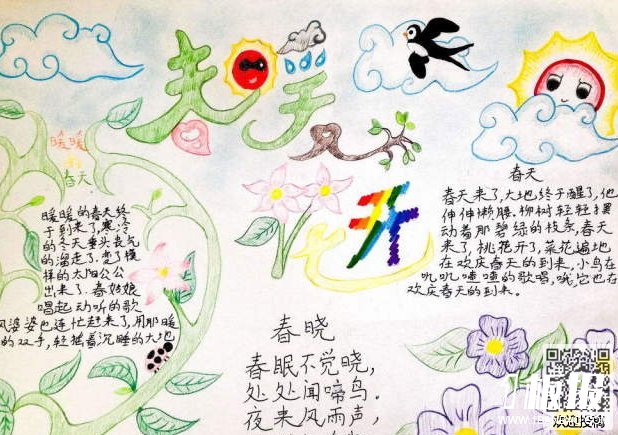 春天
花开
暖暖
的
春天
暖暖的春天终
于到来了,寒冷
的冬天垂头丧气
的溜走了.变了模
样的太阳公公
出来了.春姑娘
唱起动听的歌
风婆婆也连忙赶来了,用那暖
的双手,轻摇着沉睡的大地
春天
春天来了,大地终于醒了,他
伸伸懒腰.柳树轻轻摆
动着那碧绿的枝条,春天
来了,桃花开了,菜花遍地
在欢庆春天的到来,小鸟在
叽叽喳喳的歌唱,哦,它也在
欢庆春天的到来。
春晓
春眠不觉晓,
处处闻啼鸟.
夜来风雨声,
欢迎投稿